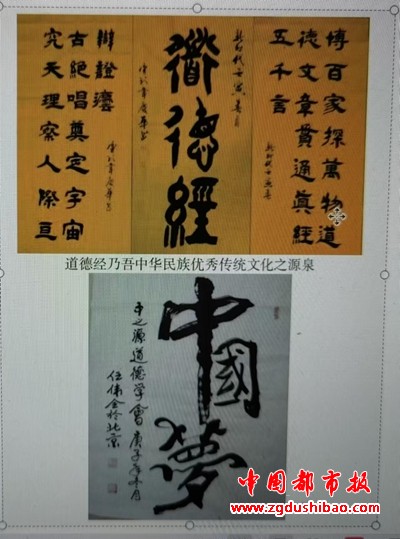 博百家探萬物道
德文章貫通眞經
五千言
道德經
究天理察人際亘
古絕唱奠定宇宙
辯證灋
道德经乃吾中华民族优秀传统文化之源泉
中國夢
之源道德学會庚子年冬月
於北京
中国都市报
www.zgdushibao.com